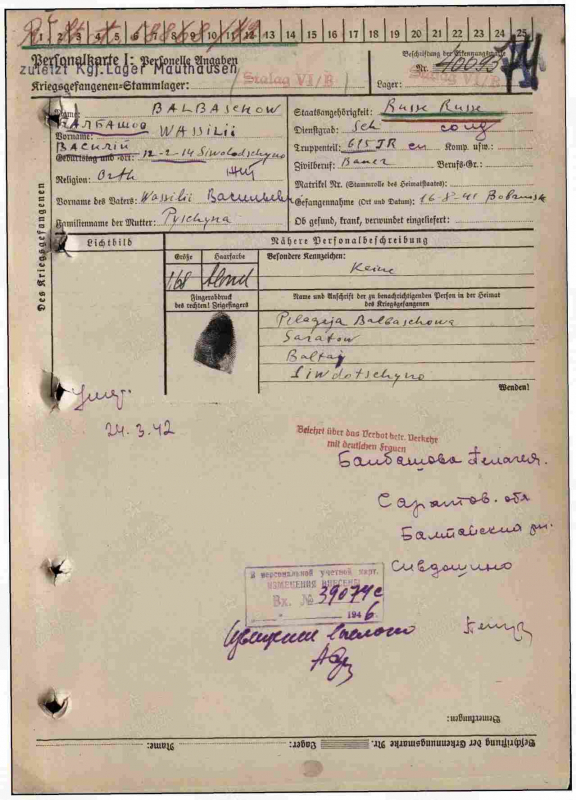 1 2 3 4 5 6 7 8 9 10 11 12 13 14 15 16 17 18 19 20 21 22 23 24 25
Personalkarte I: Personelle Angaben
zuletzt Kgf.Lager Mauthausen
Kriegsgefangenen-Stammlager: Stalag VI/B
Beschriftung der Erkennungsmarke
Nr. 40093
Lager: Stalag VI/B
Des Kriegsgefangenen
Name: BALBASCHOW
БАЛБАШОВ
Vorname: WASSILII
ВАСИЛІЙ
Geburtstag und -ort: 12-2-14 Siwolodschyno
Religion: Orth
Vorname des Vaters: Wassilii
Familienname der Mutter: Pyschyna
Staatsangehörigkeit: Russe Russe
Dienstgrad: Sch
Truppenteil: 615 JR Komp. usw.:
Zivilberuf: Bauer Berufs-Gr.:
Matrikel Nr. (Stammrolle des Heimatstaates):
Gefangennahme (Ort und Datum): 16-8-41
Ob gesund, krank, verwundet eingeliefert:
Lichtbild
Nähere Personalbeschreibung
Größe Haarfarbe
168 blond
Besondere Kennzeichen:
Keine
Fingerabdruck
des rechten! Zeigefingers
Name und Anschrift der zu benachrichtigenden Person in der Heimat
des Kriegsgefangenen
Pelageja Balbaschowa
Saratow
Baltaj
Siwdotschyno
Wenden!
24.3.42
Belehrt über das Verbot betr. Verkehr
mit deutschen Frauen
Балбашова Пелагея.
Саратов. обл
Балтайский рн.
Сивдошино
К персональной учетной карт.
ИЗМЕНЕНИЯ ВНЕСЕНЫ
Вх. № 39074с
1946
Bemerkungen:
Beschriftung der Erkennungsmarke Nr. Lager: Name: